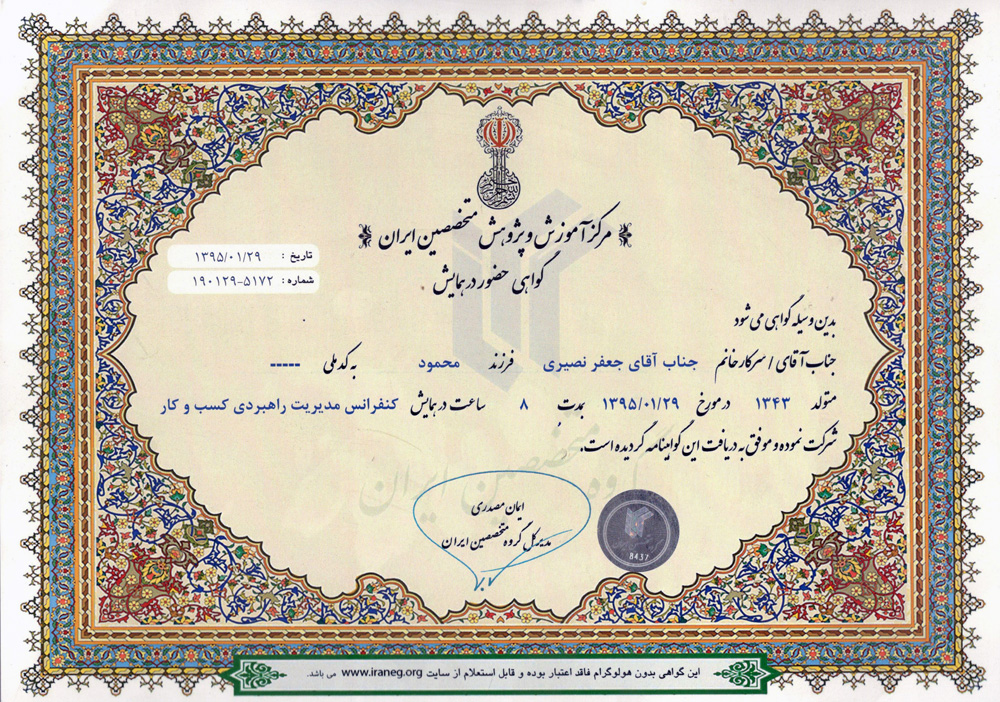 مرکز آموزش و پژوهش متخصصین ایران
گواهی حضور در همایش
تاریخ : ۱۳۹۵/۰۱/۲۹
شماره : ۱۹۰۱۲۹-۵۱۷۲
بدین وسیله گواهی می شود
جناب آقای / سرکار خانم جناب آقای جعفر نصیری فرزند محمود به کد ملی -----
متولد ۱۳۴۳ در مورخ ۱۳۹۵/۰۱/۲۹ بمدت ۸ ساعت در همایش کنفرانس مدیریت راهبردی کسب و کار
شرکت نموده و موفق به دریافت این گواهینامه گردیده است.
گروه متخصصین ایران
ایمان مصدری
مدیر کل گروه متخصصین ایران
8437
این گواهی بدون هولوگرام فاقد اعتبار بوده و قابل استعلام از سایت www.iraneg.org می باشد.